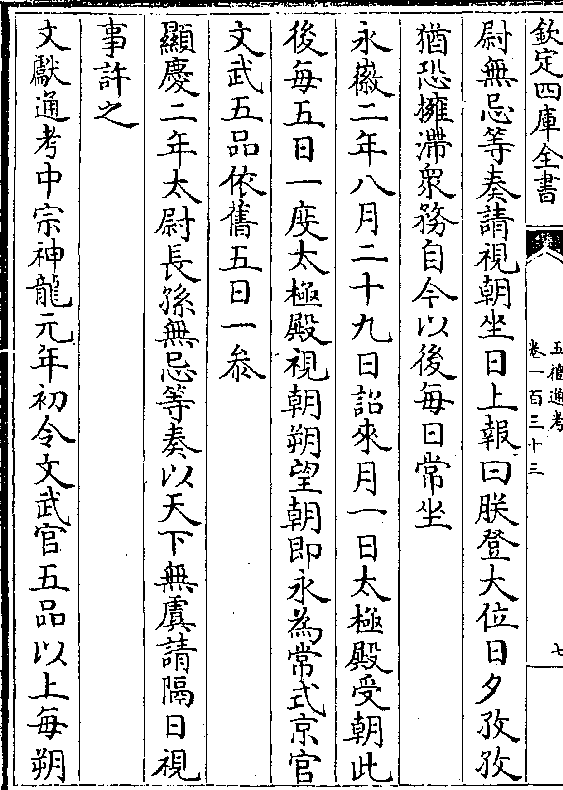 欽定四庫全書
五禮通考
卷一百三十三
七
尉無忌等奏請視朝坐日上報曰朕登大位日夕孜孜
猶恐擁滯衆務自今以後每日常坐
永徽二年八月二十九日詔來月一日太極殿受朝此
後每五日一度太極殿視朝朔望朝即永為常式京官
文武五品依舊五日一叅
顯慶二年太尉長孫無忌等奏以天下無虞請隔日視
事許之
文獻通考中宗神龍元年初令文武官五品以上每朔